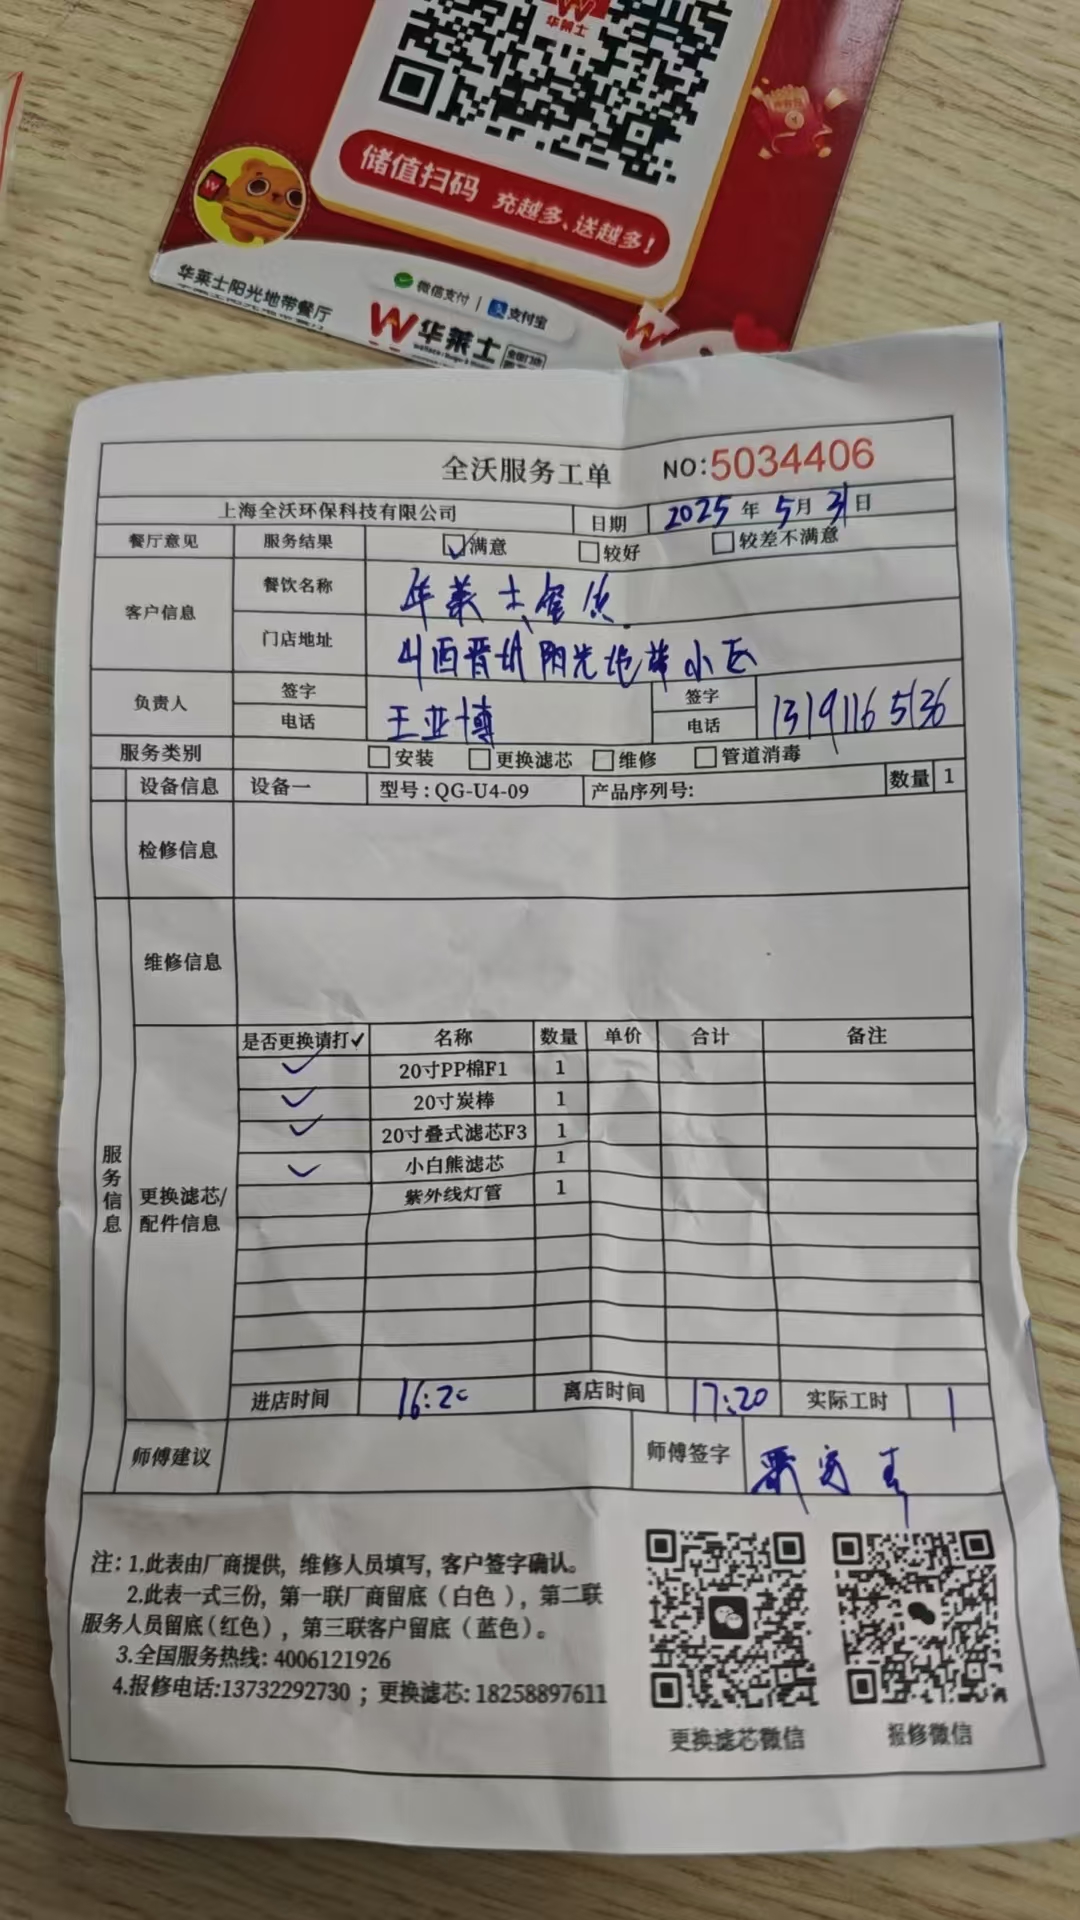 华莱士
储值扫码 充越多、送越多!
微信支付 | 支付宝
华莱士阳光地带餐厅
华莱士
全沃服务工单 NO:5034406
上海全沃环保科技有限公司 日期 2025年5月31日
餐厅意见 服务结果 ☑满意 □较好 □较差不满意
客户信息 餐饮名称 华莱士餐饮
门店地址 山西晋城阳光地带小区
负责人 签字 电话 王亚博 签字 电话 13191165136
服务类别 □安装 □更换滤芯 □维修 □管道消毒
设备信息 设备一 型号:QG-U4-09 产品序列号: 数量 1
检修信息
维修信息
服务信息
更换滤芯/配件信息
是否更换请打✓ 名称 数量 单价 合计 备注
✓ 20寸PP棉F1 1
✓ 20寸炭棒 1
✓ 20寸叠式滤芯F3 1
✓ 小白熊滤芯 1
紫外线灯管 1
进店时间 16:20 离店时间 17:20 实际工时 1
师傅建议 师傅签字
注: 1.此表由厂商提供, 维修人员填写, 客户签字确认。
2.此表一式三份, 第一联厂商留底(白色), 第二联
服务人员留底(红色), 第三联客户留底(蓝色)。
3.全国服务热线: 4006121926
4.报修电话:13732292730 ; 更换滤芯: 18258897611
更换滤芯微信 报修微信